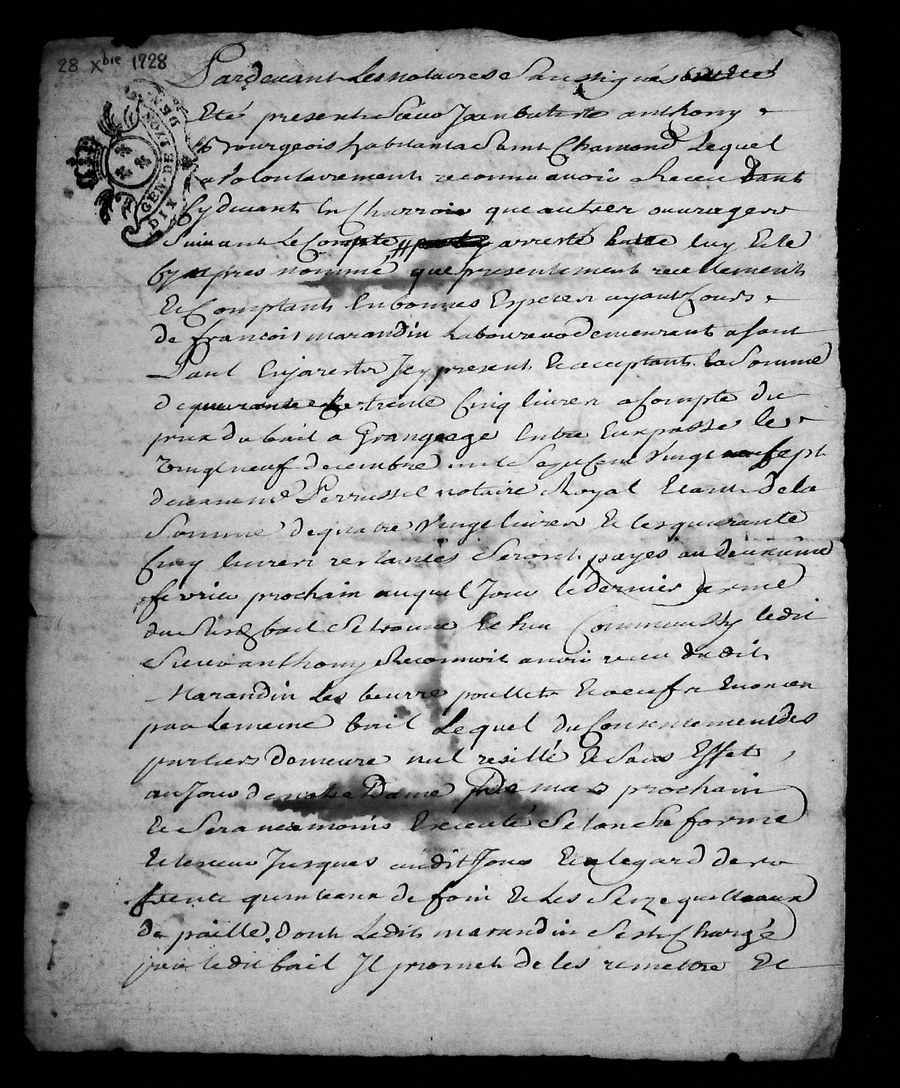 28 Xbre 1728
GEN. DE LYON
DIX DEN.
Pardevant Les notaires Soussignés
Eté present Sieur Jean batiste anthony
Bourgeois habitant a Saint Chamond Lequel
a volontairement reconnu avoir Receu tant
Cydevant En Charrois que autres ouvrages
Suivant Le Compte arresté Entre luy Et le
Cyapres nommé que presentement reellement
Et Comptant En bonnes Especes ayant Cours
de francois marandin Laboureur demeurant a saint
Paul Enjarest Icy present Et acceptant La Somme
de trente Cinq livres a Compte du
prix du bail a Grangeage Entre Eux passé le
vingt neuf decembre mil Sept Cent Vingt sept
devant me Perrussel notaire Royal Etant de la
Somme de quatre Vingt livres Et les quarante
Cinq livres restantes Seront payes au deuxième
fevrier prochain auquel Jour le dernier terme
du Susd bail Se trouve Echeu Comme aussy ledit
Sieur anthony Reconnoit avoir receu dudit
Marandin Les beurre poullets Et oeufs
par Le meme bail Lequel du Consentement des
parties demeure nul resillé Et Sans Effet
au Jour de notre Dame de mars prochain
Et Sera neamoins Executé Selon Sa forme
Et teneur Jusques audit Jour Et a legard des
trente quinteaux de foin Et Les Seize quinteaux
de paille. Dont Ledit marandin Sest Chargé
par ledit bail Il promet de les remettre Et